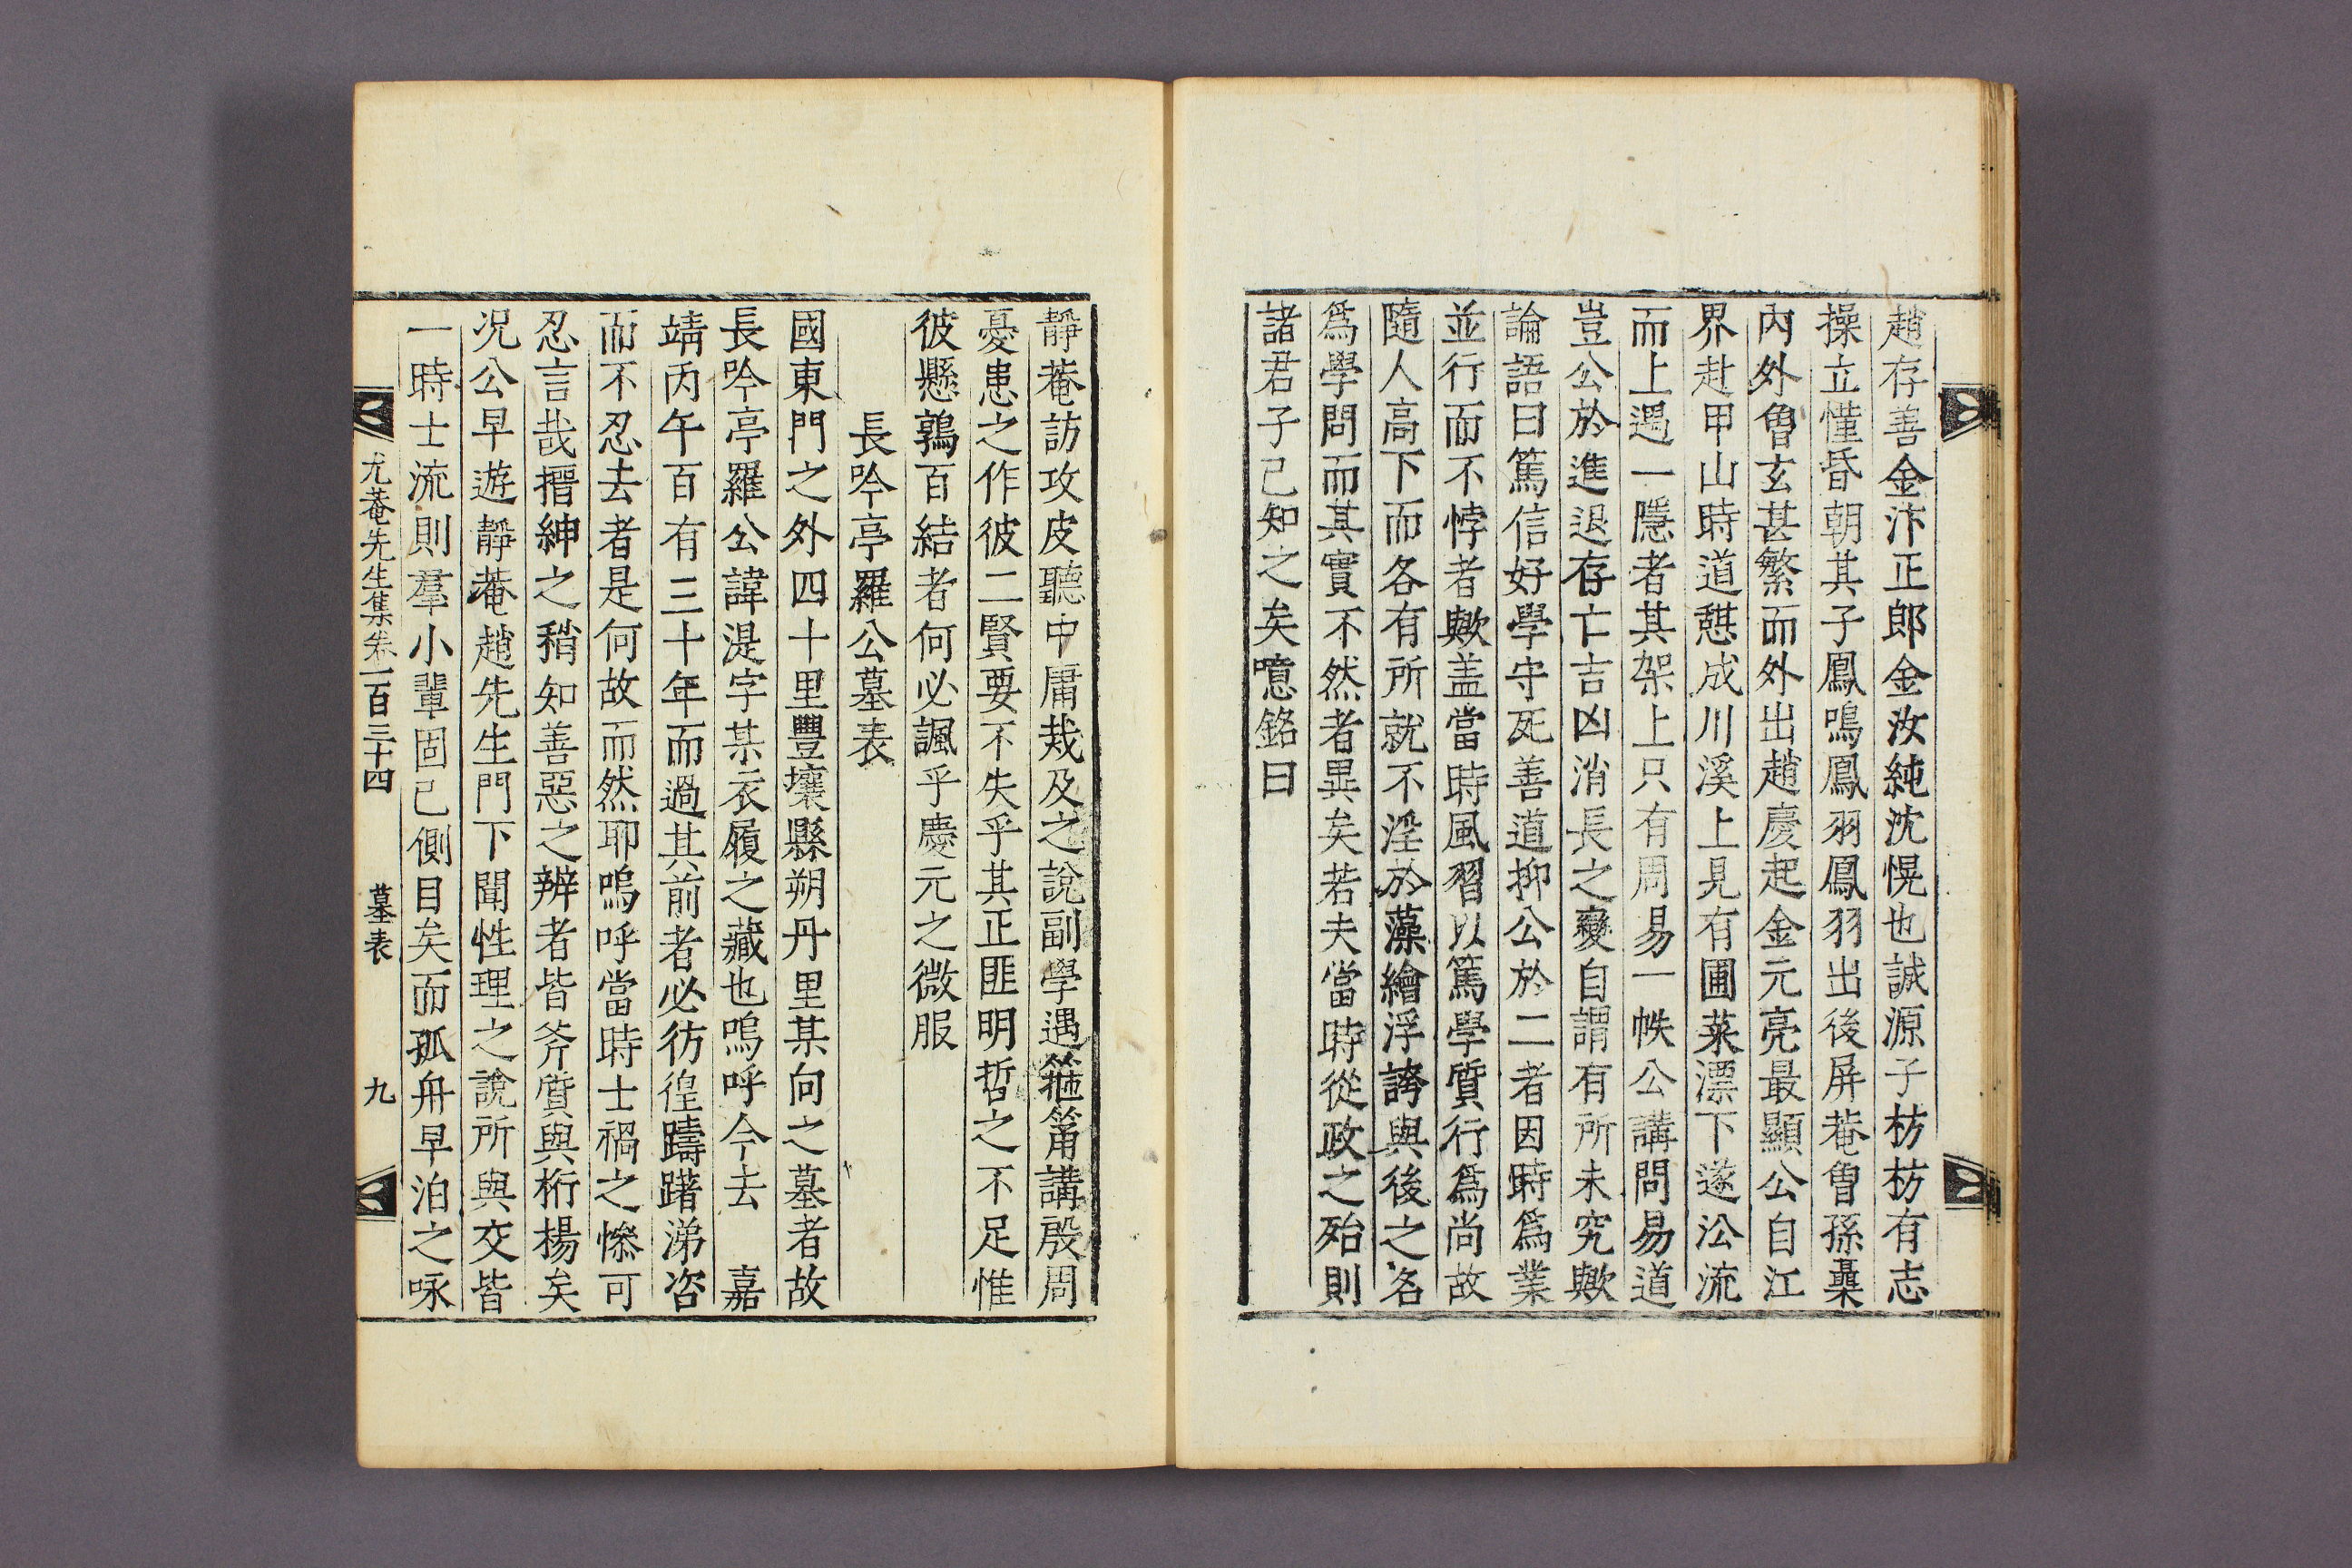 趙存善金汴正郎金汝純沈愰也誠源子枋枋有志
操立慬昏朝其子鳳鳴鳳羽鳳羽出後屏菴曾孫櫜
內外曾玄甚繁而外出趙慶起金元亮最顯公自江
界赴甲山時道憇成川溪上見有圃菜漂下遂㳂流
而上遇一隱者其架上只有周易一帙公講問易道
豈公於進退存亡吉凶消長之變自謂有所未究歟
論語曰篤信好學守死善道抑公於二者因時爲業
並行而不悖者歟盖當時風習以篤學質行爲尚故
隨人高下而各有所就不淫於藻繪浮誇與後之名
爲學問而其實不然者異矣若夫當時從政之殆則
諸君子已知之矣噫銘曰
靜菴訪攻皮聽中庸栽及之說副學遇箍筩講殷周
憂患之作彼二賢要不失乎其正匪明哲之不足惟
彼懸鶉百結者何必諷乎慶元之微服
長吟亭羅公墓表
國東門之外四十里豐壤縣朔丹里某向之墓者故
長吟亭羅公諱湜字某衣履之藏也嗚呼今去 嘉
靖丙午百有三十年而過其前者必彷徨躊躇涕咨
而不忍去者是何故而然耶嗚呼當時士禍之慘可
忍言哉搢紳之稍知善惡之辨者皆斧質與桁楊矣
况公早遊靜菴趙先生門下聞性理之說所與交皆
一時士流則羣小輩固已側目矣而孤舟早泊之咏
尤菴先生集卷一百三十四 墓表 九